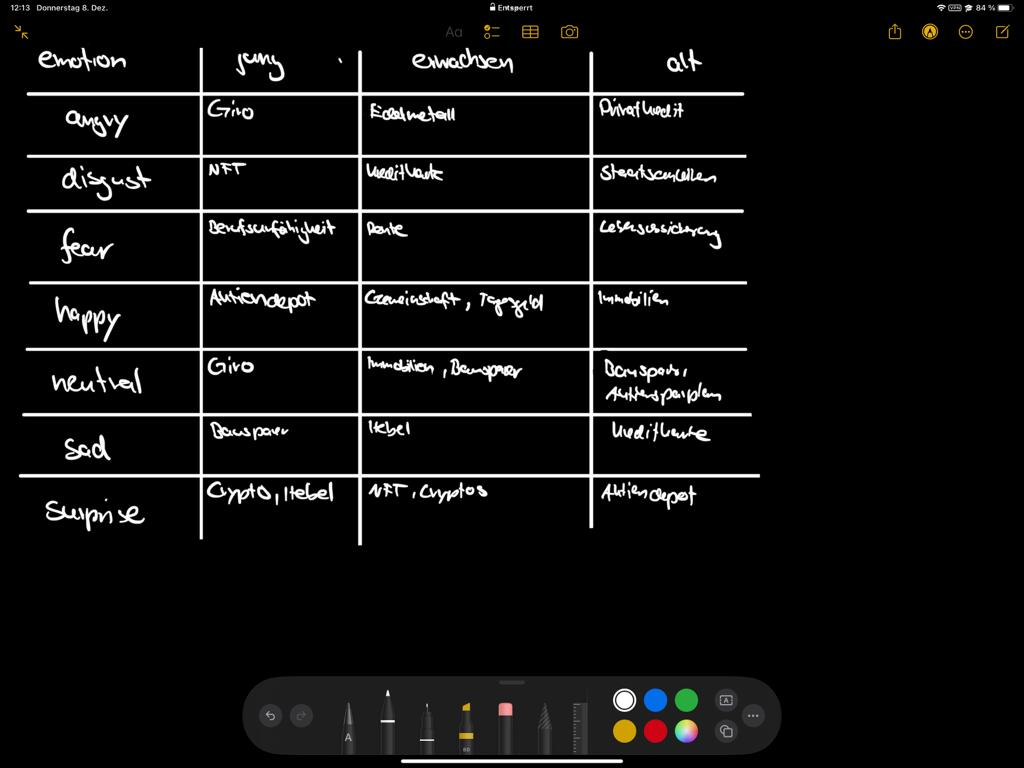 12:13 Donnerstag 8. Dez. Entsperrt VPN 84 %
Aa
emotion jung erwachsen alt
angry Giro Edelmetall Privatkredit
disgust NFT Kreditkarte Staatsanleihen
fear Berufsunfähigkeit Rente Lebensversicherung
happy Aktiendepot Gemeinschaft, Tagesgeld Immobilien
neutral Giro Immobilien, Bausparer Bausparer,
Aktiensparplan
sad Bausparer Hebel Kreditkarte
surprise Crypto, Hebel NFT, Cryptos Aktiendepot
A 80 A